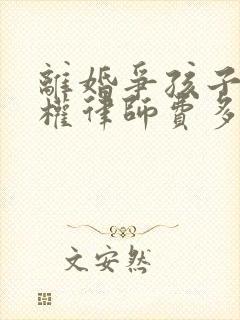 離婚爭孩子
權律師費多
文安然